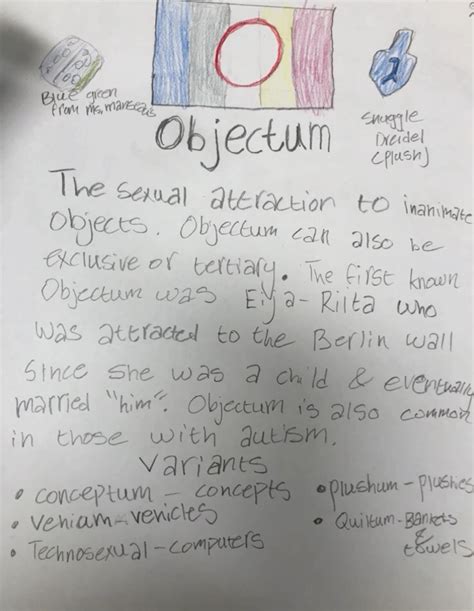 2
Blue green
from ms. mans
Snuggle
Dreidel
(plush)
2
Objectum
The sexual attraction to inanimate
Objects. Objectum can also be
exclusive or tertiary. The first known
Objectum was Eija-Riita who
was attracted to the Berlin wall
since she was a child & eventually
married "him". Objectum is also common
in those with autism.
Variants
• conceptum - concepts
• vehium - vehicles
• Technosexual - computers
• plushum - plushies
• Quiltum - Blankets
& towels